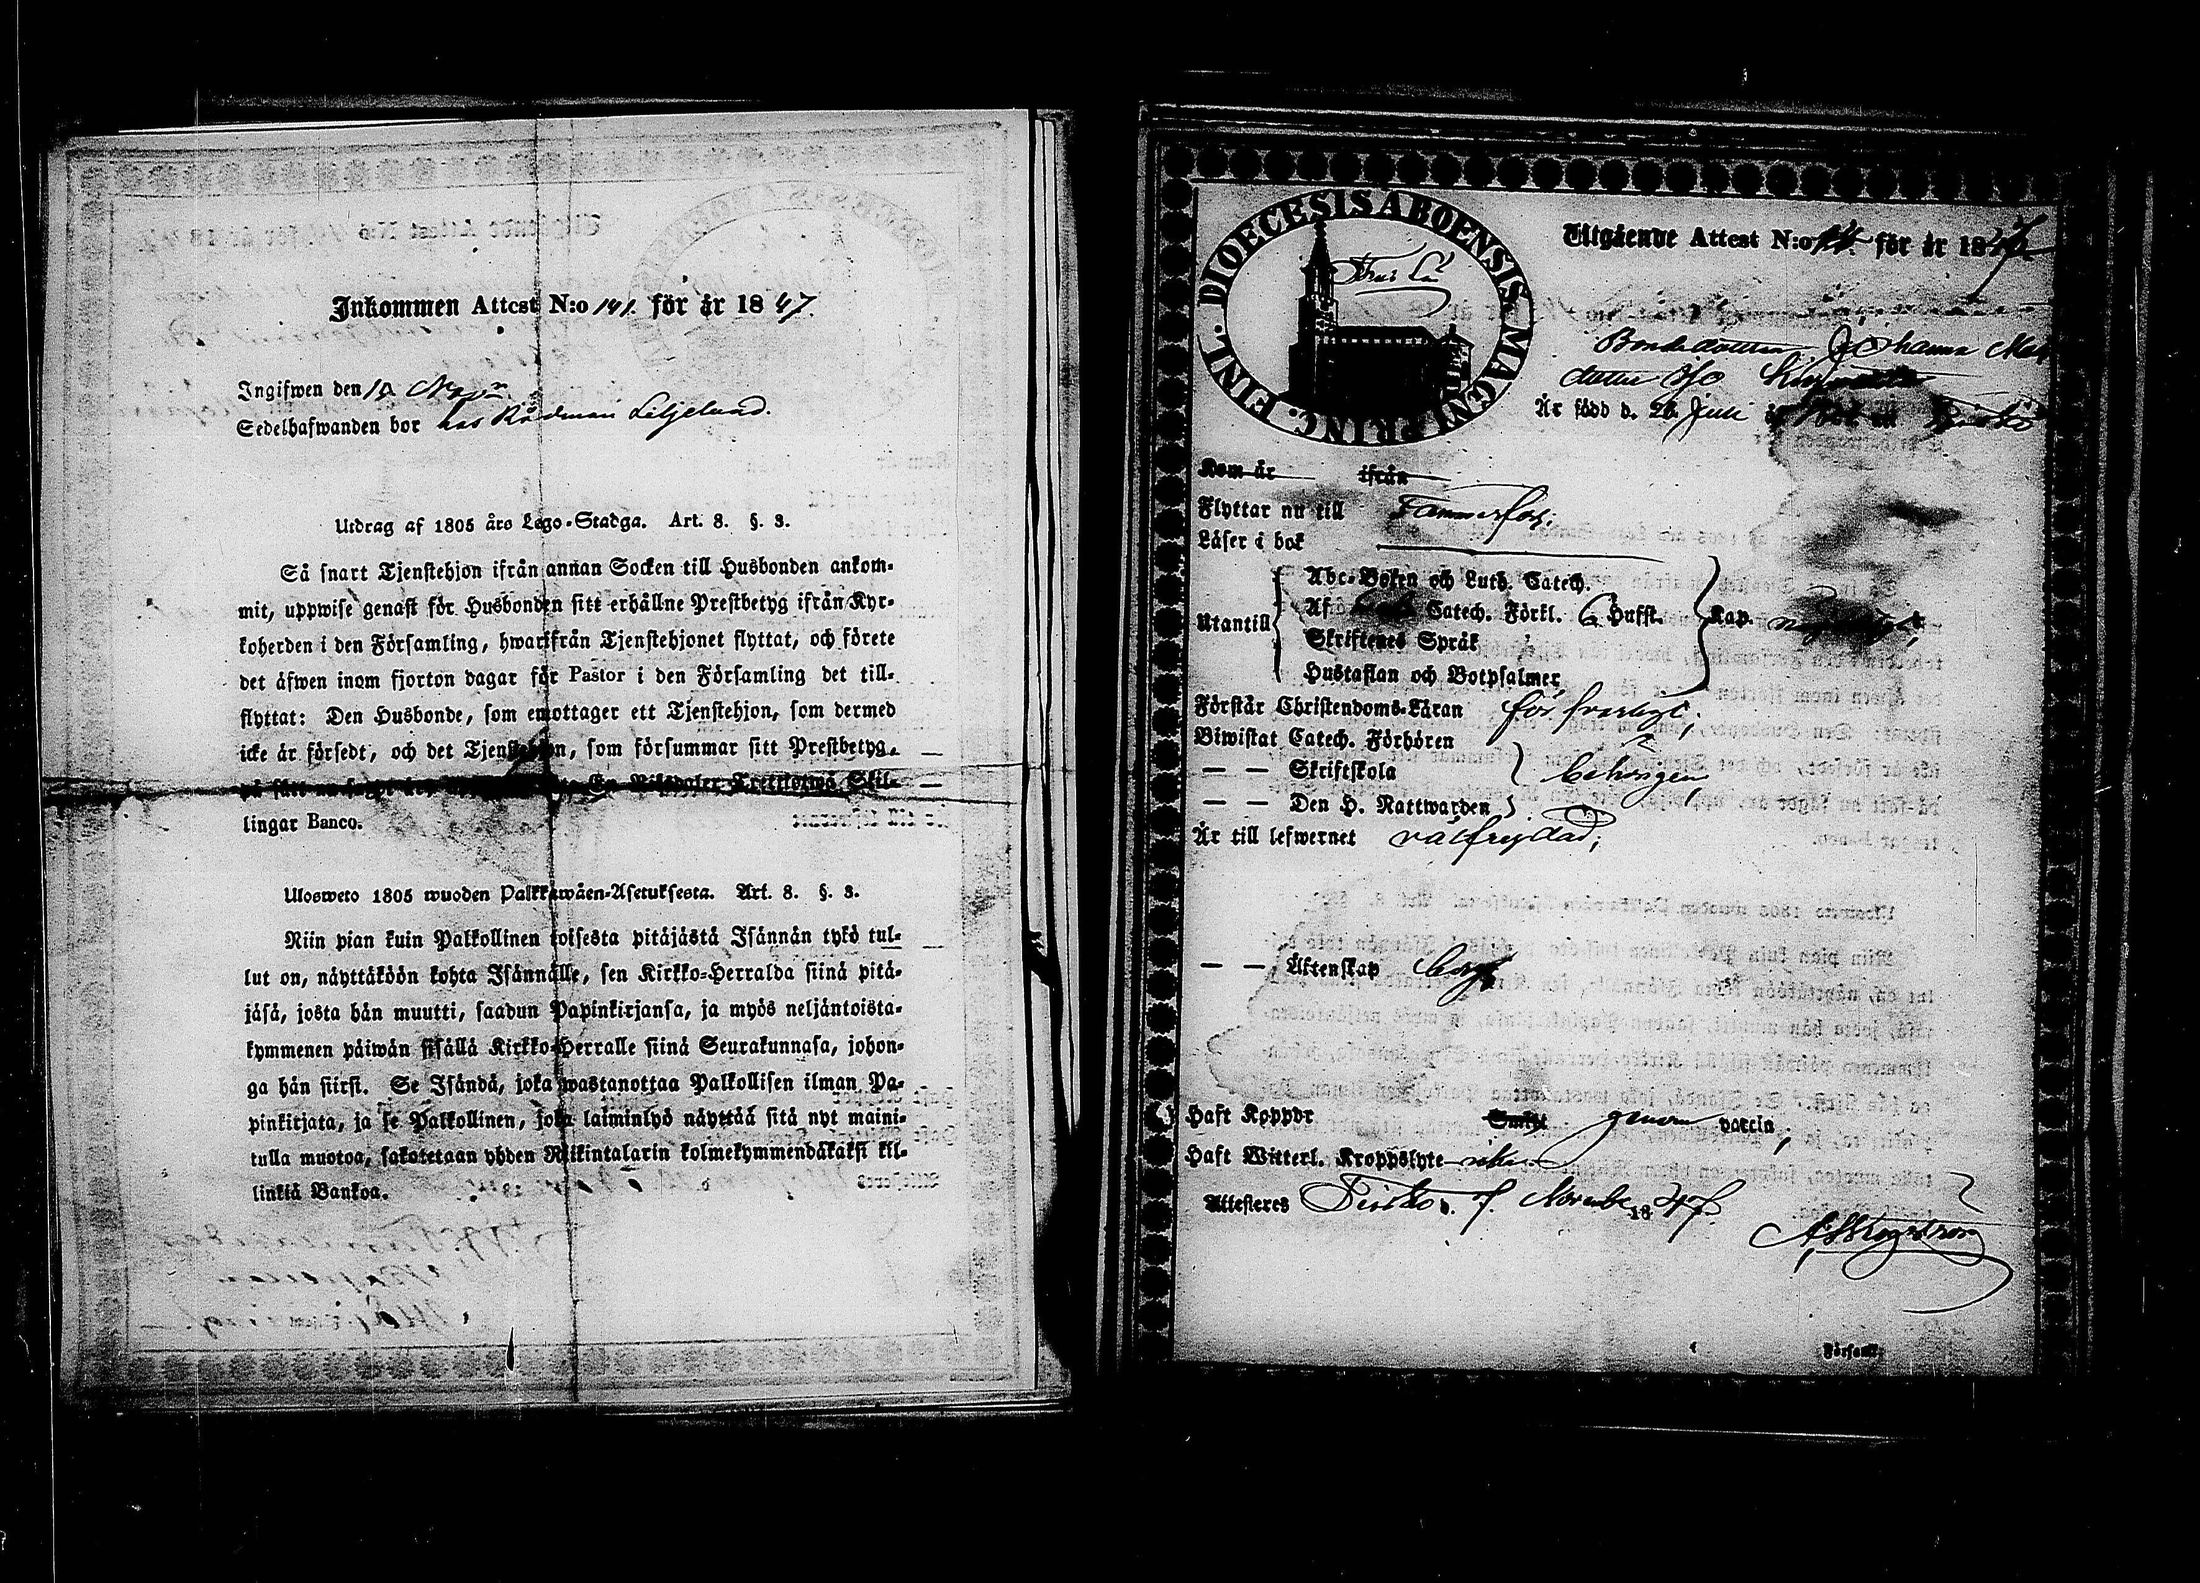 Inkommen Attest N:o 141. för år 1847.
Ingifwen den 10 Nov
Sedelhafwanden bor hos Rådman Liljelund.
Utdrag af 1805 års Lego-Stadga. Art. 8. §. 3.
Så snart Tjenstehjon ifrån annan Socken till Husbonden ankom-
mit, uppwise genast för Husbonden sitt erhållne Prestbetyg ifrån Kyr-
koherden i den Församling, hwarifrån Tjenstehjonet flyttat, och förete
det äfwen inom fjorton dagar för Pastor i den Församling det till-
flyttat: Den Husbonde, som emottager ett Tjenstehjon, som dermed
icke är försedt, och det Tjenstehjon, som försummar sitt Prestbetyg
på sätt nu En Riksdaler Trettiotwå Skil-
lingar Banco.
Ulosweto 1805 wuoden Palkkawäen-Asetuksesta. Art. 8. §. 3.
Niin pian kuin Palkollinen toisesta pitäjästä Isännän tykö tul-
lut on, näyttäköön kohta Isännälle, sen Kirkko-Herralda siinä pitä-
jäsä, josta hän muutti, saadun Papinkirjansa, ja myös neljäntoista-
kymmenen päiwän sisällä Kirkko-Herralle siinä Seurakunnasa, johon-
ga hän siirsi. Se Isändä, joka wastanottaa Palkollisen ilman Pa-
pinkirjata, ja se Palkollinen, joka laiminlyö näyttää sitä nyt maini-
tulla muotoa, sakotetaan yhden Riikintalarin kolmekymmendäkaksi kil-
linkiä Bankoa.
DIOECESIS ABOENSIS MAGNI PRINC. FINL.
Utgående Attest N:o för år 1847
Bondedottren Johanna Mats
dotter
Är född d. 26 Juli
Kom år ifrån
Flyttar nu till Tammerfors;
Läser i bok
Utantill
Abc-Boken och Luth. Catech.
Af Catech. Förkl. 6 Hufst.
Skriftenes Språk
Hustaflan och Botpsalmer
Kap.
Förstår Christendoms-Läran försvarligt;
Biwistat Catech. Förhören
— — Skriftskola behörigen,
— — Den H. Nattwarden
Är till lefwernet välfrejdad;
— — Äktenskap ledig
Haft Koppor Smitt genom vaccin;
Haft Witterl. Kroppslyte
Attesteras d. 7. November 1847.
Församl.